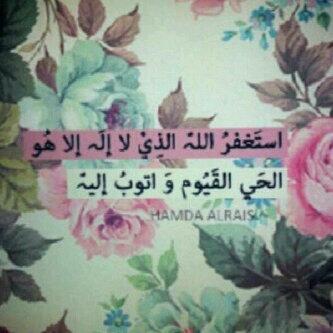 استَغفرُ اللهّ الذِيْ لا إلَہ إلا هُو
الحَي القَيُوم وَ اتوبُ إليہّ
HAMDA ALRAISI